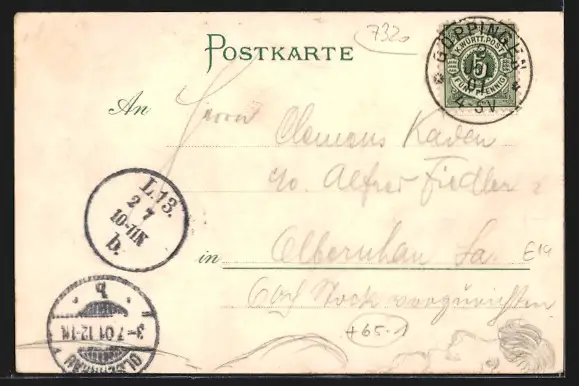 732
POSTKARTE
K. WÜRTT. POST
5
FÜNF PFENNIG
GÖPPINGEN
An
Herrn Clemens Kaden
c/o. Alfred Fiedler
L.13.
2 7
10-11N
b.
in
Olbernhau Sa
E14
+65-1
3-7 01 12-1N
b